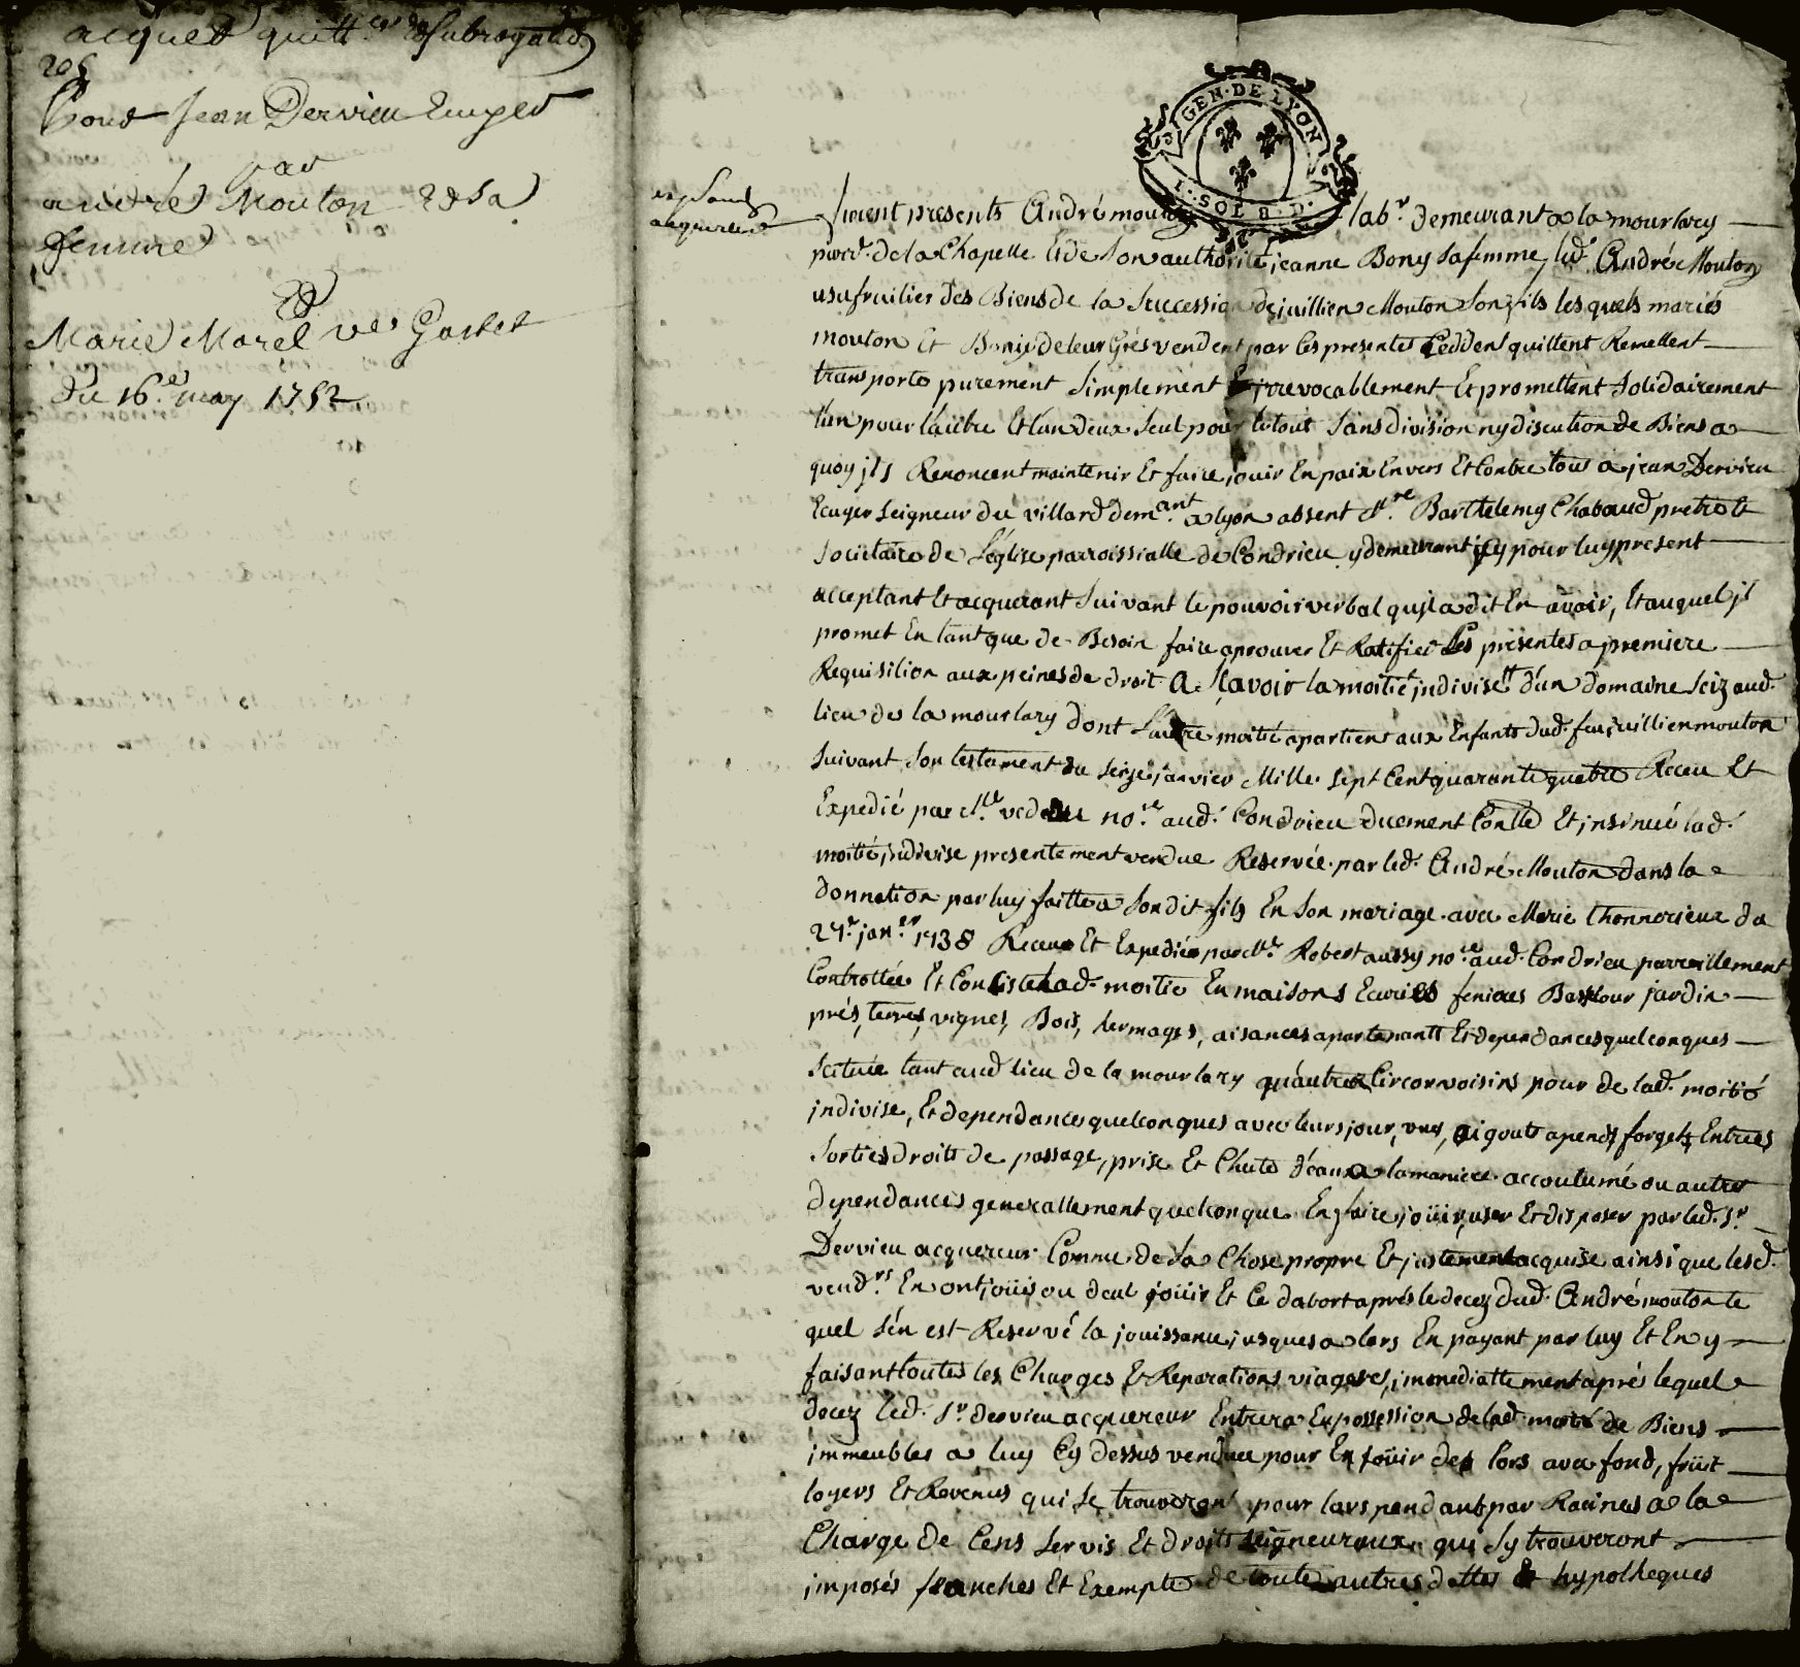 acquet quitt.ces & Subrogaōn
Pour Jean Dervieu Ecuyer
par
andré Mouton & sa
femme
Et
Marie Morel ve. Gachet
Du 16.e may 1752
GEN. DE LYON
1. SOL 8. D.
acquereur
furent presents André mouton lab.r demeurant a la mourlary
parr.e de la Chapelle et de son authorité jeanne Bony sa femme, led. André Mouton
usufruitier des Biens de la succession de juillien Mouton son fils lesquels mariés
mouton Et Bony de leur Grés vendent par les presentes Ceddent quittent Remettent
transporte purement simplement Et jrrevocablement Et promettent solidairement
l'un pour l'autre Et l'un deux seul pour le tout sans division ny discution de Biens a
quoy jls Renoncent maintenir Et faire jouir En paix Envers Et Contre tous a jean Dervieu
Ecuyer seigneur du villard dem.ant a lyon absent M.re Barthelemy Chabaud pretre et
societaire de L'église parroissialle de Condrieu y demeurant jcy pour luy present
acceptant Et acquerant suivant le pouvoir verbal qujl a dit En avoir, Et auquel jl
promet En tant que de Besoin faire aprouver Et Ratifier Les presentes a premiere
Requisition aux peines de droit A Sçavoir la moitié jndivise d'un domaine sciz aud.
lieu de la mourlary dont L'autre moitié apartient aux Enfants dud. feu juillien mouton
suivant son testament du seize janvier Mille sept Cent quarante quatre Receu Et
Expedié par M.e no.re aud. Condrieu duement Conllé Et jnsinué lad.
moitié jndivise presentement vendue Reservée par led. André Mouton dans la
donnation par luy faitte a son dit fils En son mariage avec Marie thonnerieux du
27.e jan.er 1738 Receue Et Expediée par M.e Robert aussy no.re aud. Condrieu parreillement
Controllée Et Consiste lad. moitié En maisons Ecuries fenieres Basse Cour jardin
prés, terres, vignes, Bois, hermages, aisances apartenants Et dependances quelconques
scituée tant aud lieu de la mourlary qu'autres Circonvoisins pour de lad. moitié
jndivise, Et dependances quelconques avec leurs jour, vues, aigouts apends forgets Entrées
sorties droits de passage, prise Et Chute d'eaux a la maniere accoutumé ou autres
dependances generallement quelconque En faire jouir, user Et disposer par led. S.r
Dervieu acquereur Comme de sa Chose propre Et justement acquise ainsi que lesd.
vend.rs En ont jouis ou deub jouir Et Ce dabort aprés le decez dud. André mouton le
quel s'en est Reservé la jouissance jusques a lors En payant par luy Et En y
faisant toutes les Charges Et Reparations viageres, jmmediattement aprés lequel
decez led. S.r dervieu acquereur Entrera En possession de lad. moitié de Biens
jmmeubles a luy Cy dessus vendue pour En jouir des lors avec fond, fruit
loyers Et Revenus qui se trouveront pour lors pendants par Racines a la
Charge de Cens servis Et droits seigneuraux qui sy trouveront
jmposés franches Et Exempte de toute autres dettes Et hypotheques